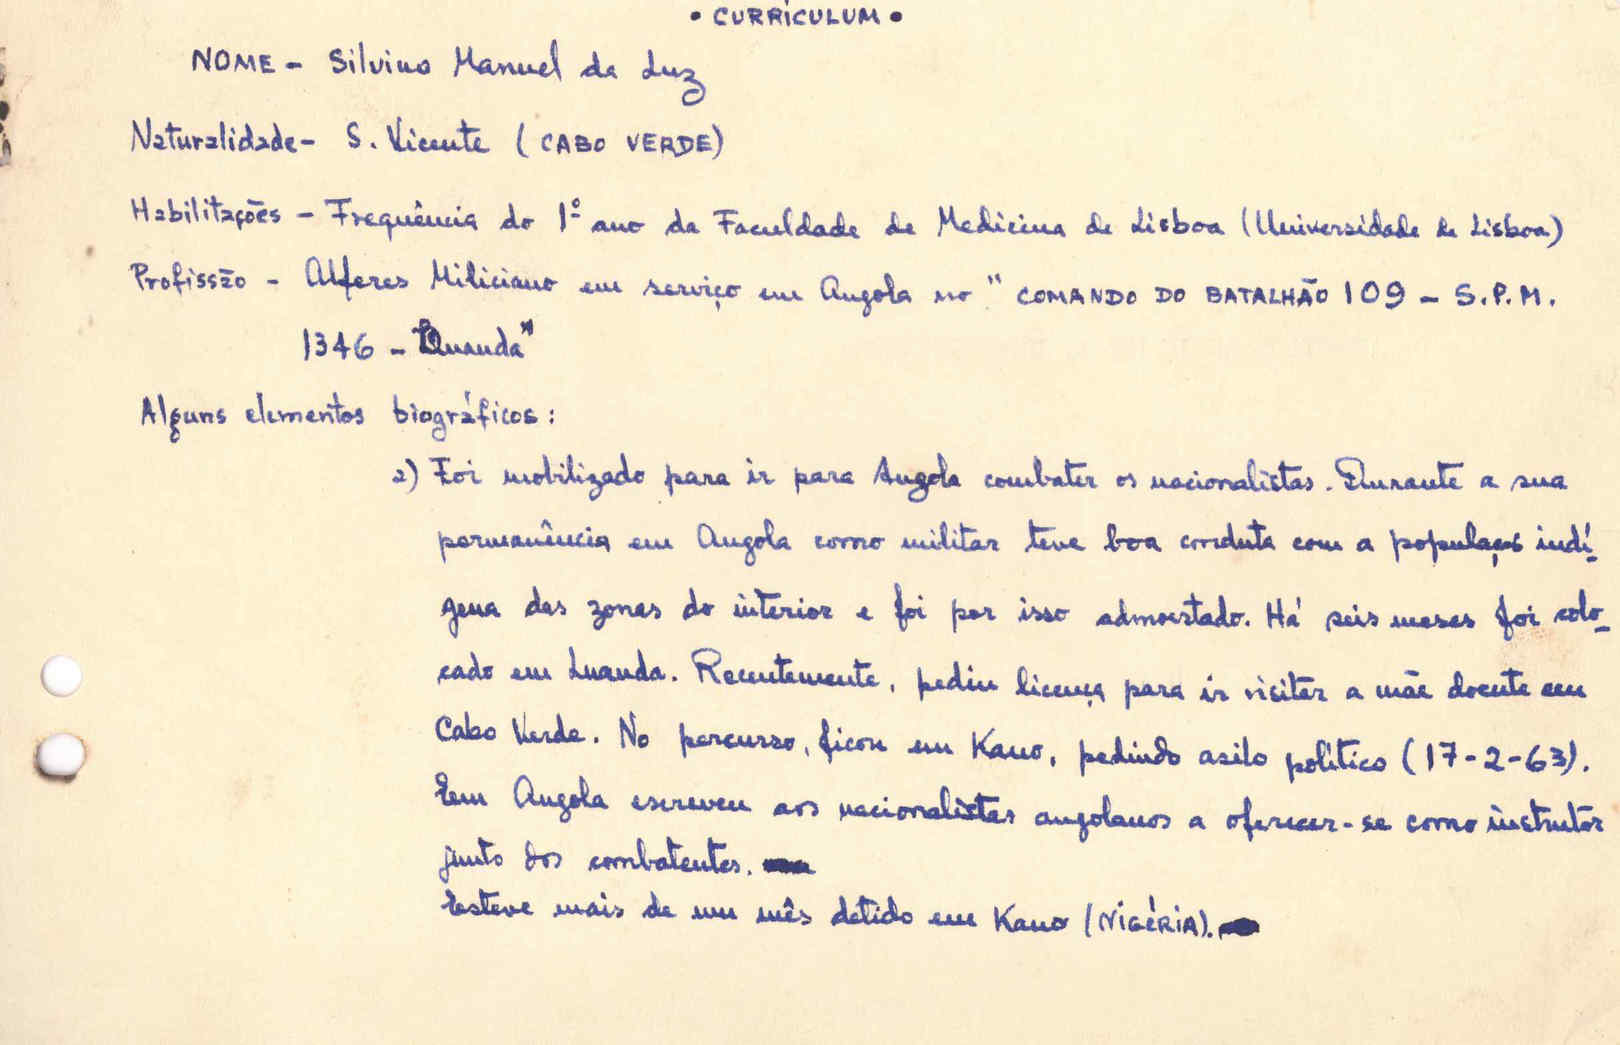 • CURRÍCULUM •
NOME - Silvino Manuel da Luz
Naturalidade - S. Vicente (CABO VERDE)
Habilitações - Frequência do 1º ano da Faculdade de Medicina de Lisboa (Universidade de Lisboa)
Profissão - Alferes Miliciano em serviço em Angola no "COMANDO DO BATALHÃO 109 - S.P.M.
1346 - Luanda"
Alguns elementos biográficos:
a) Foi mobilizado para ir para Angola combater os nacionalistas. Durante a sua
permanência em Angola como militar teve boa conduta com a população indí-
gena das zonas do interior e foi por isso admoestado. Há seis meses foi colo-
cado em Luanda. Recentemente, pediu licença para ir visitar a mãe doente em
Cabo Verde. No percurso, ficou em Kano, pedindo asilo político (17-2-63).
Em Angola escreveu aos nacionalistas angolanos a oferecer-se como instrutor
junto dos combatentes.
Esteve mais de um mês detido em Kano (NIGÉRIA).